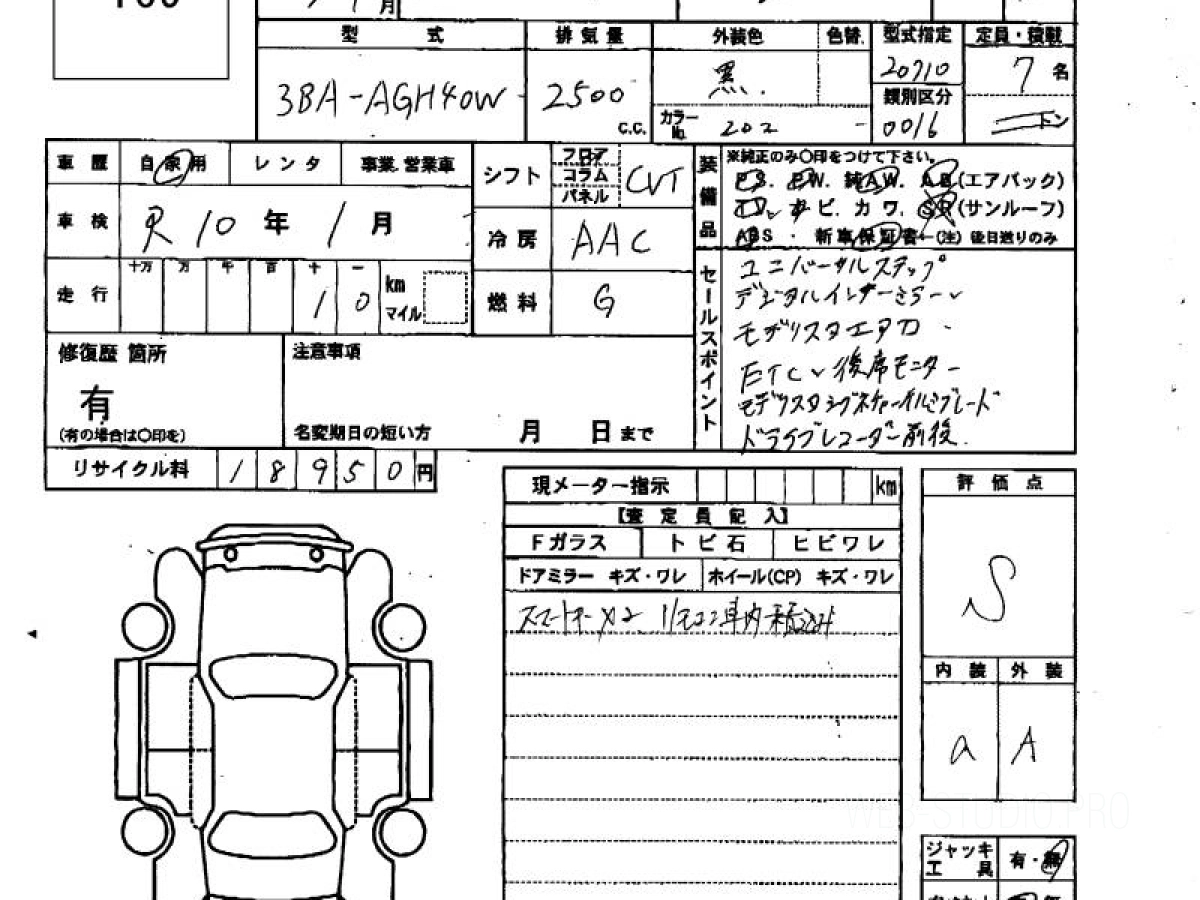 月
型 式 排気量 外装色 色替 型式指定 定員・積載
3BA-AGH40W 2500 c.c. 黒 カラーNo. 202 20710 7名
類別区分 0016 トン
車歴 自家用 レンタ 事業.営業車
車検 R10年1月
走行 十万 万 千 百 十 一 10 km マイル
シフト フロア コラム パネル CVT
冷房 AAC
燃料 G
装備品
※純正のみ〇印をつけて下さい。
P.S. P.W. 純A.W. A.B(エアバック)
T.V. ナビ. カワ. SR(サンルーフ)
ABS・新車保証書←(注)後日送りのみ
セールスポイント
ユニバーサルステップ
デジタルインナーミラー
モデリスタエアロ
ETC 後席モニター
モデリスタシグネチャーイルミブレード
ドライブレコーダー前後
修復歴 箇所
有
(有の場合は〇印を)
注意事項
名変期日の短い方 月 日まで
リサイクル料 18950円
現メーター指示 km
【査定員記入】
Fガラス トビ石 ヒビワレ
ドアミラー キズ・ワレ ホイール(CP) キズ・ワレ
スマートキー×2 リモコン車内積込み
評価点
S
内装 外装
a A
ジャッキ 工具 有・無
WEB-STUDIO.PRO